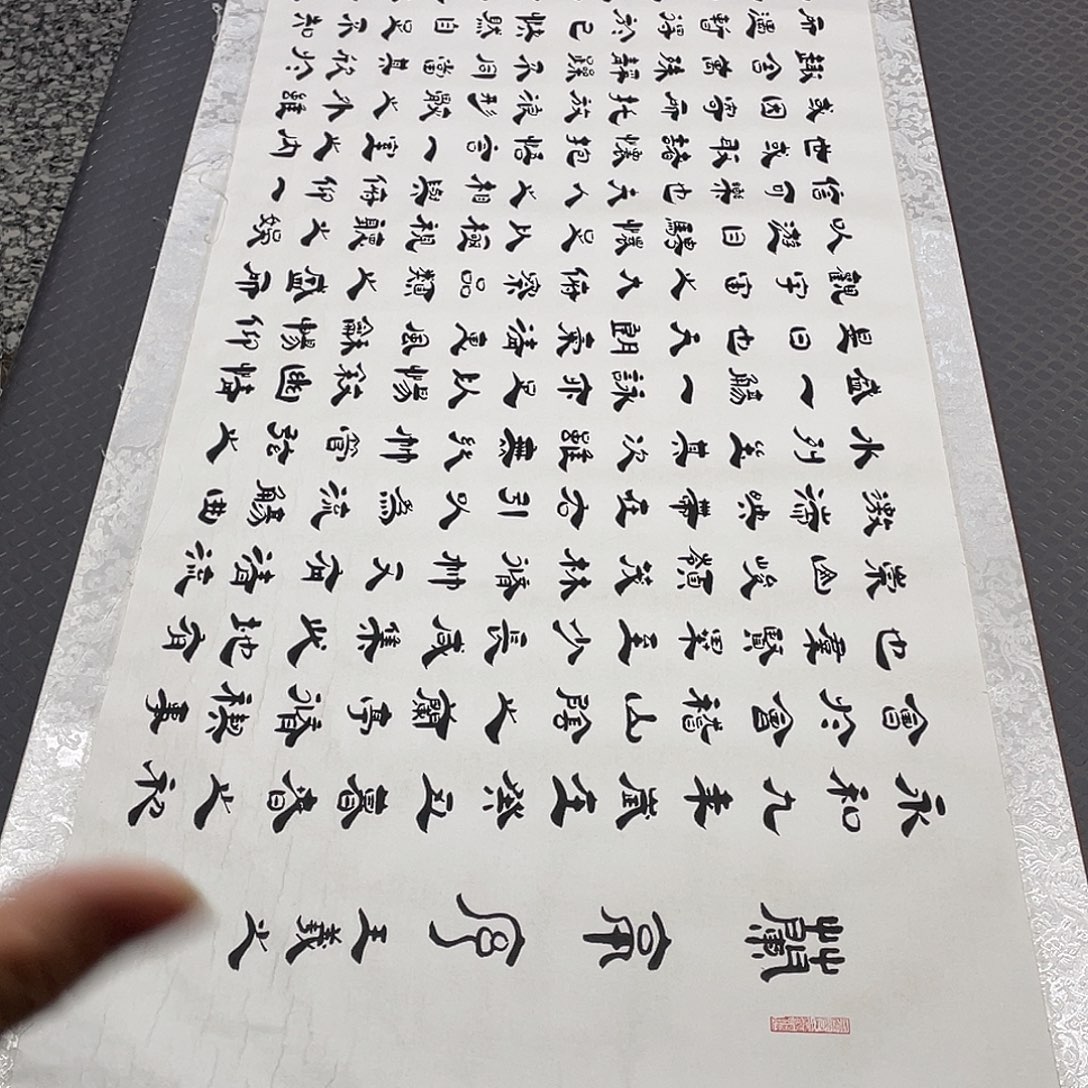 蘭亭序 王羲之
永和九年歲在癸丑暮春之初
會於會稽山陰之蘭亭脩禊事
也羣賢畢至少長咸集此地有
崇山峻嶺茂林脩竹又有清流
激湍映帶左右引以為流觴曲
水列坐其次雖無絲竹管弦之
盛一觴一詠亦足以暢敘幽情
是日也天朗氣清惠風龢暢仰
觀宇宙之大俯察品類之盛所
以遊目騁懷足以極視聽之娛
信可樂也夫人之相與俯仰一
世或取諸懷抱悟言一室之內
或因寄所托放浪形骸之外雖
趣舍萬殊靜躁不同當其欣於
所遇暫得於己快然自足不知